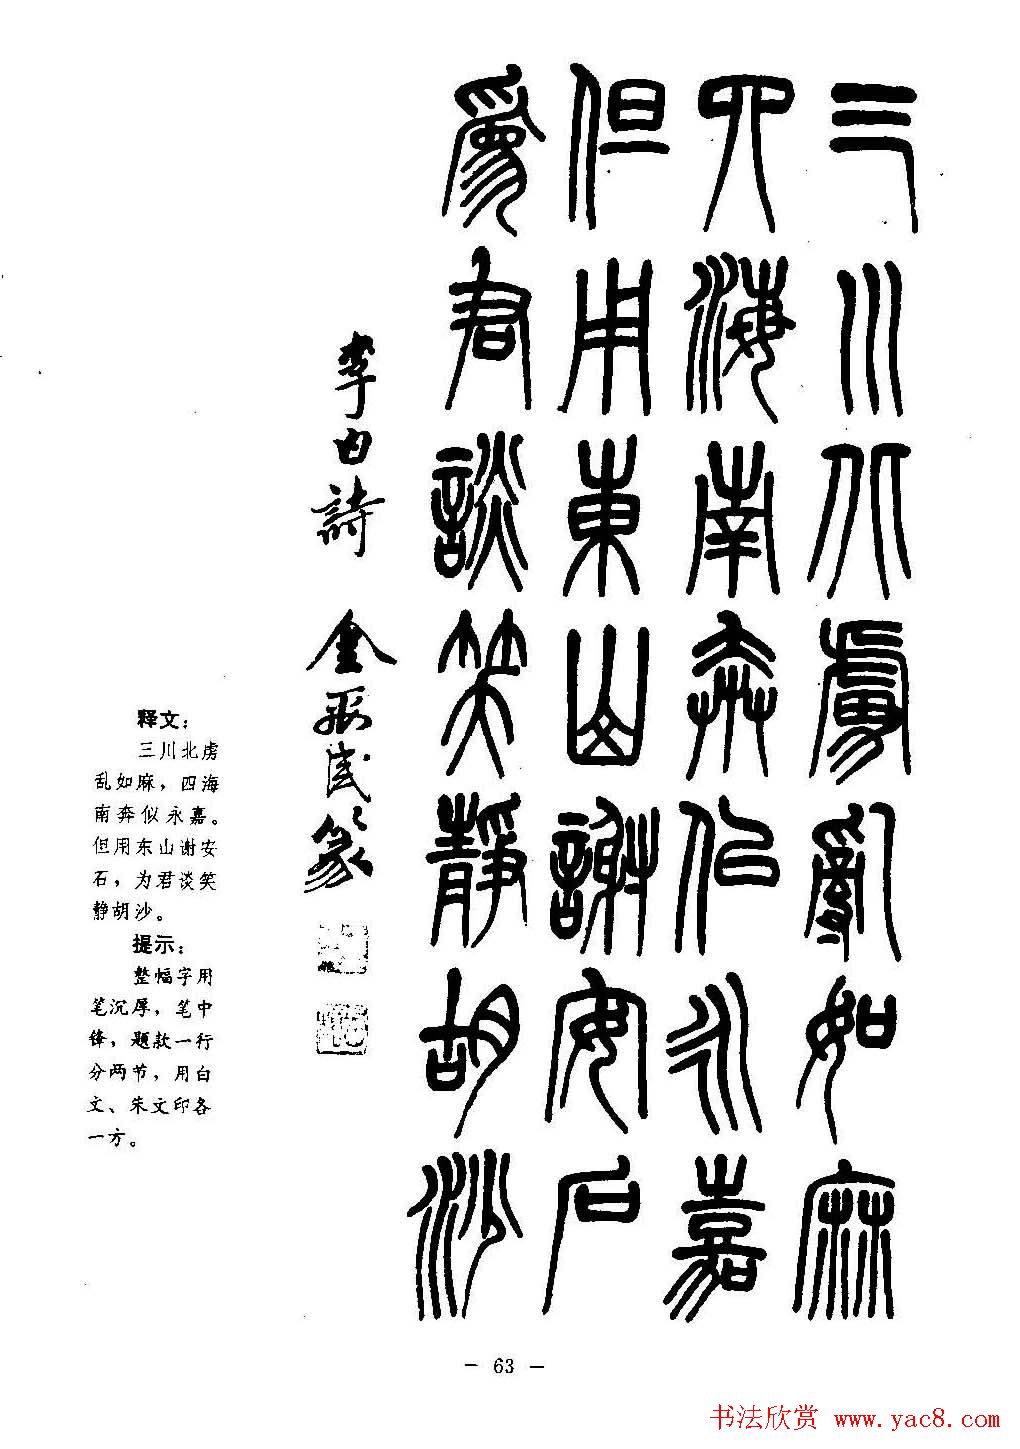 三川北虜亂如麻
四海南奔佀永嘉
但用東山謝安石
爲君談笑靜胡沙
李白詩 金 篆
释文：
三川北虏
乱如麻，四海
南奔似永嘉。
但用东山谢安
石，为君谈笑
静胡沙。
提示：
整幅字用
笔沉厚，笔中
锋，题款一行
分两节，用白
文、朱文印各
一方。
– 63 –
书法欣赏 www.yac8.com